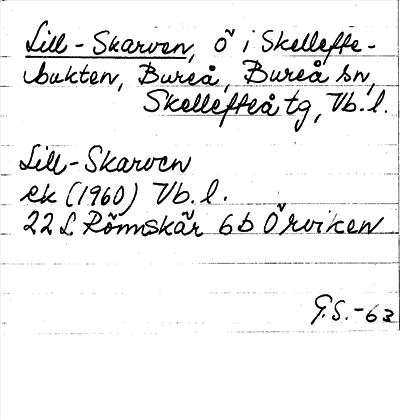 Lill-Skarven, ö i Skellefte-
bukten, Bureå, Bureå sn,
Skellefteå tg, Vb. l.
Lill-Skarven
ek (1960) Vb. l.
22 L Rönnskär 6b Örviken
G.S.-63